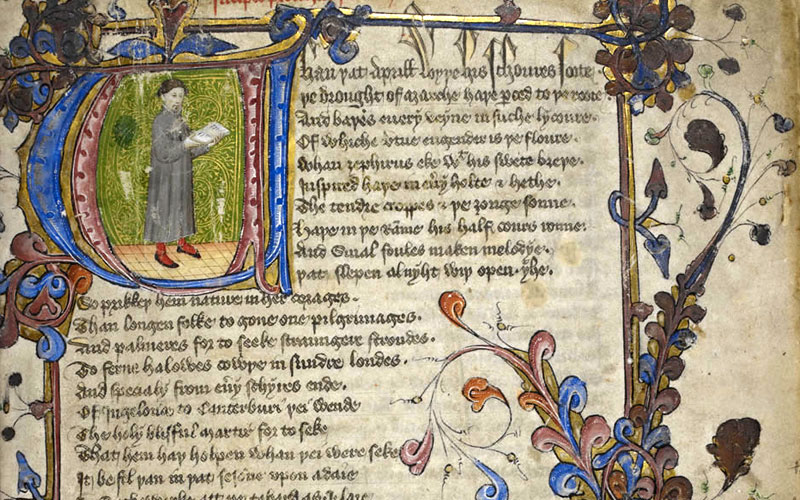 Whan þat Aprill wyþe his schoures soote
Þe drought of marche haþe perced to þe roote
And baþed euery veyne in suche lycoure
Of whiche vertue engendred is þe floure
Whan zephirus eke wt his swete breþe
Inspired haþe in euery holte & hethe
The tendre croppes & þe ȝonge sonne
Haþe in þe Rāme his half cours ronne
And smal foules maken melodye
þat slepen al nyht wiþ open yhe
So prikkeþ hem nature in her corages
Than longen folke to gone one pilgrimages
And palmeres for to seeke straungere strondes
To ferne halowes cowþe in sundre londes
And specialy from euery schyres ende
Of Ingelond to Canterburi þei wende
The holy blisful martir for to seke
That hem haþ holpen whan þei were seke
It befil þan in þat sesone vpon a daie